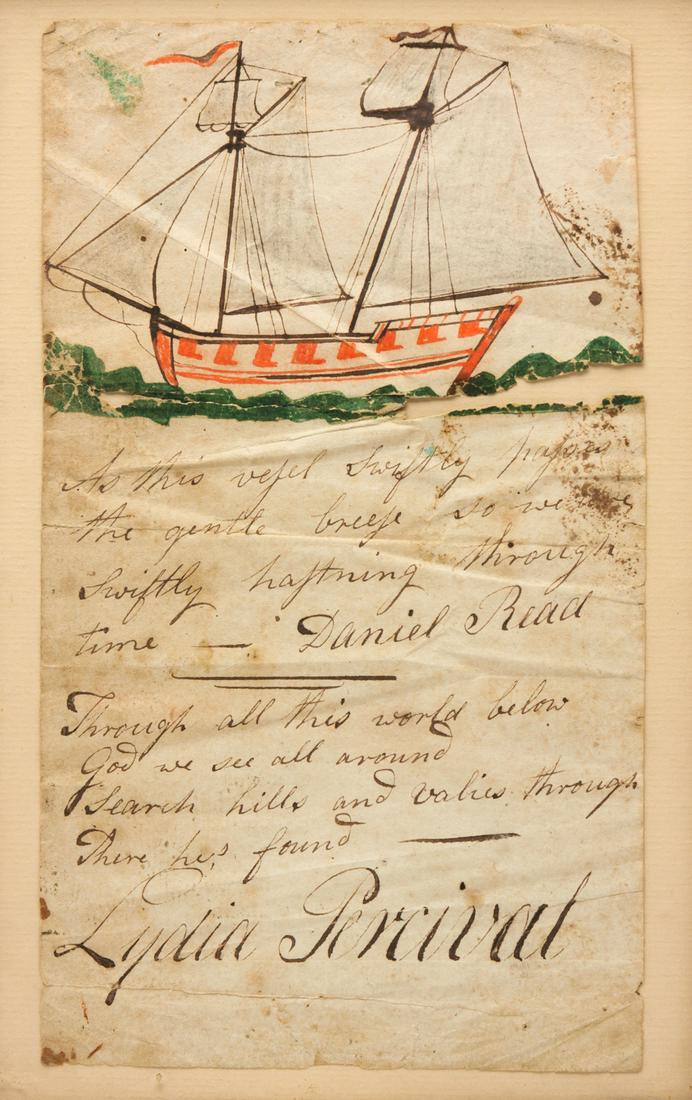 As this veſsel swiftly paſses
the gentle breeſe so we are
swiftly haſtning through
time — Daniel Read
Through all this world below
God we see all around
Search hills and valies through
There he,s found —
Lydia Percival